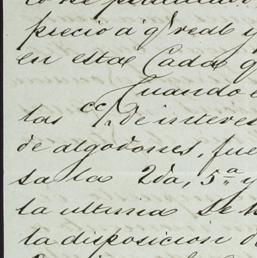 precio á q.l real y
en esta Cada q
Cuando
las cc/ps. de interes
de algodones, fue
sa la 2da, 5a y
la ultima Se h
la disposicion d